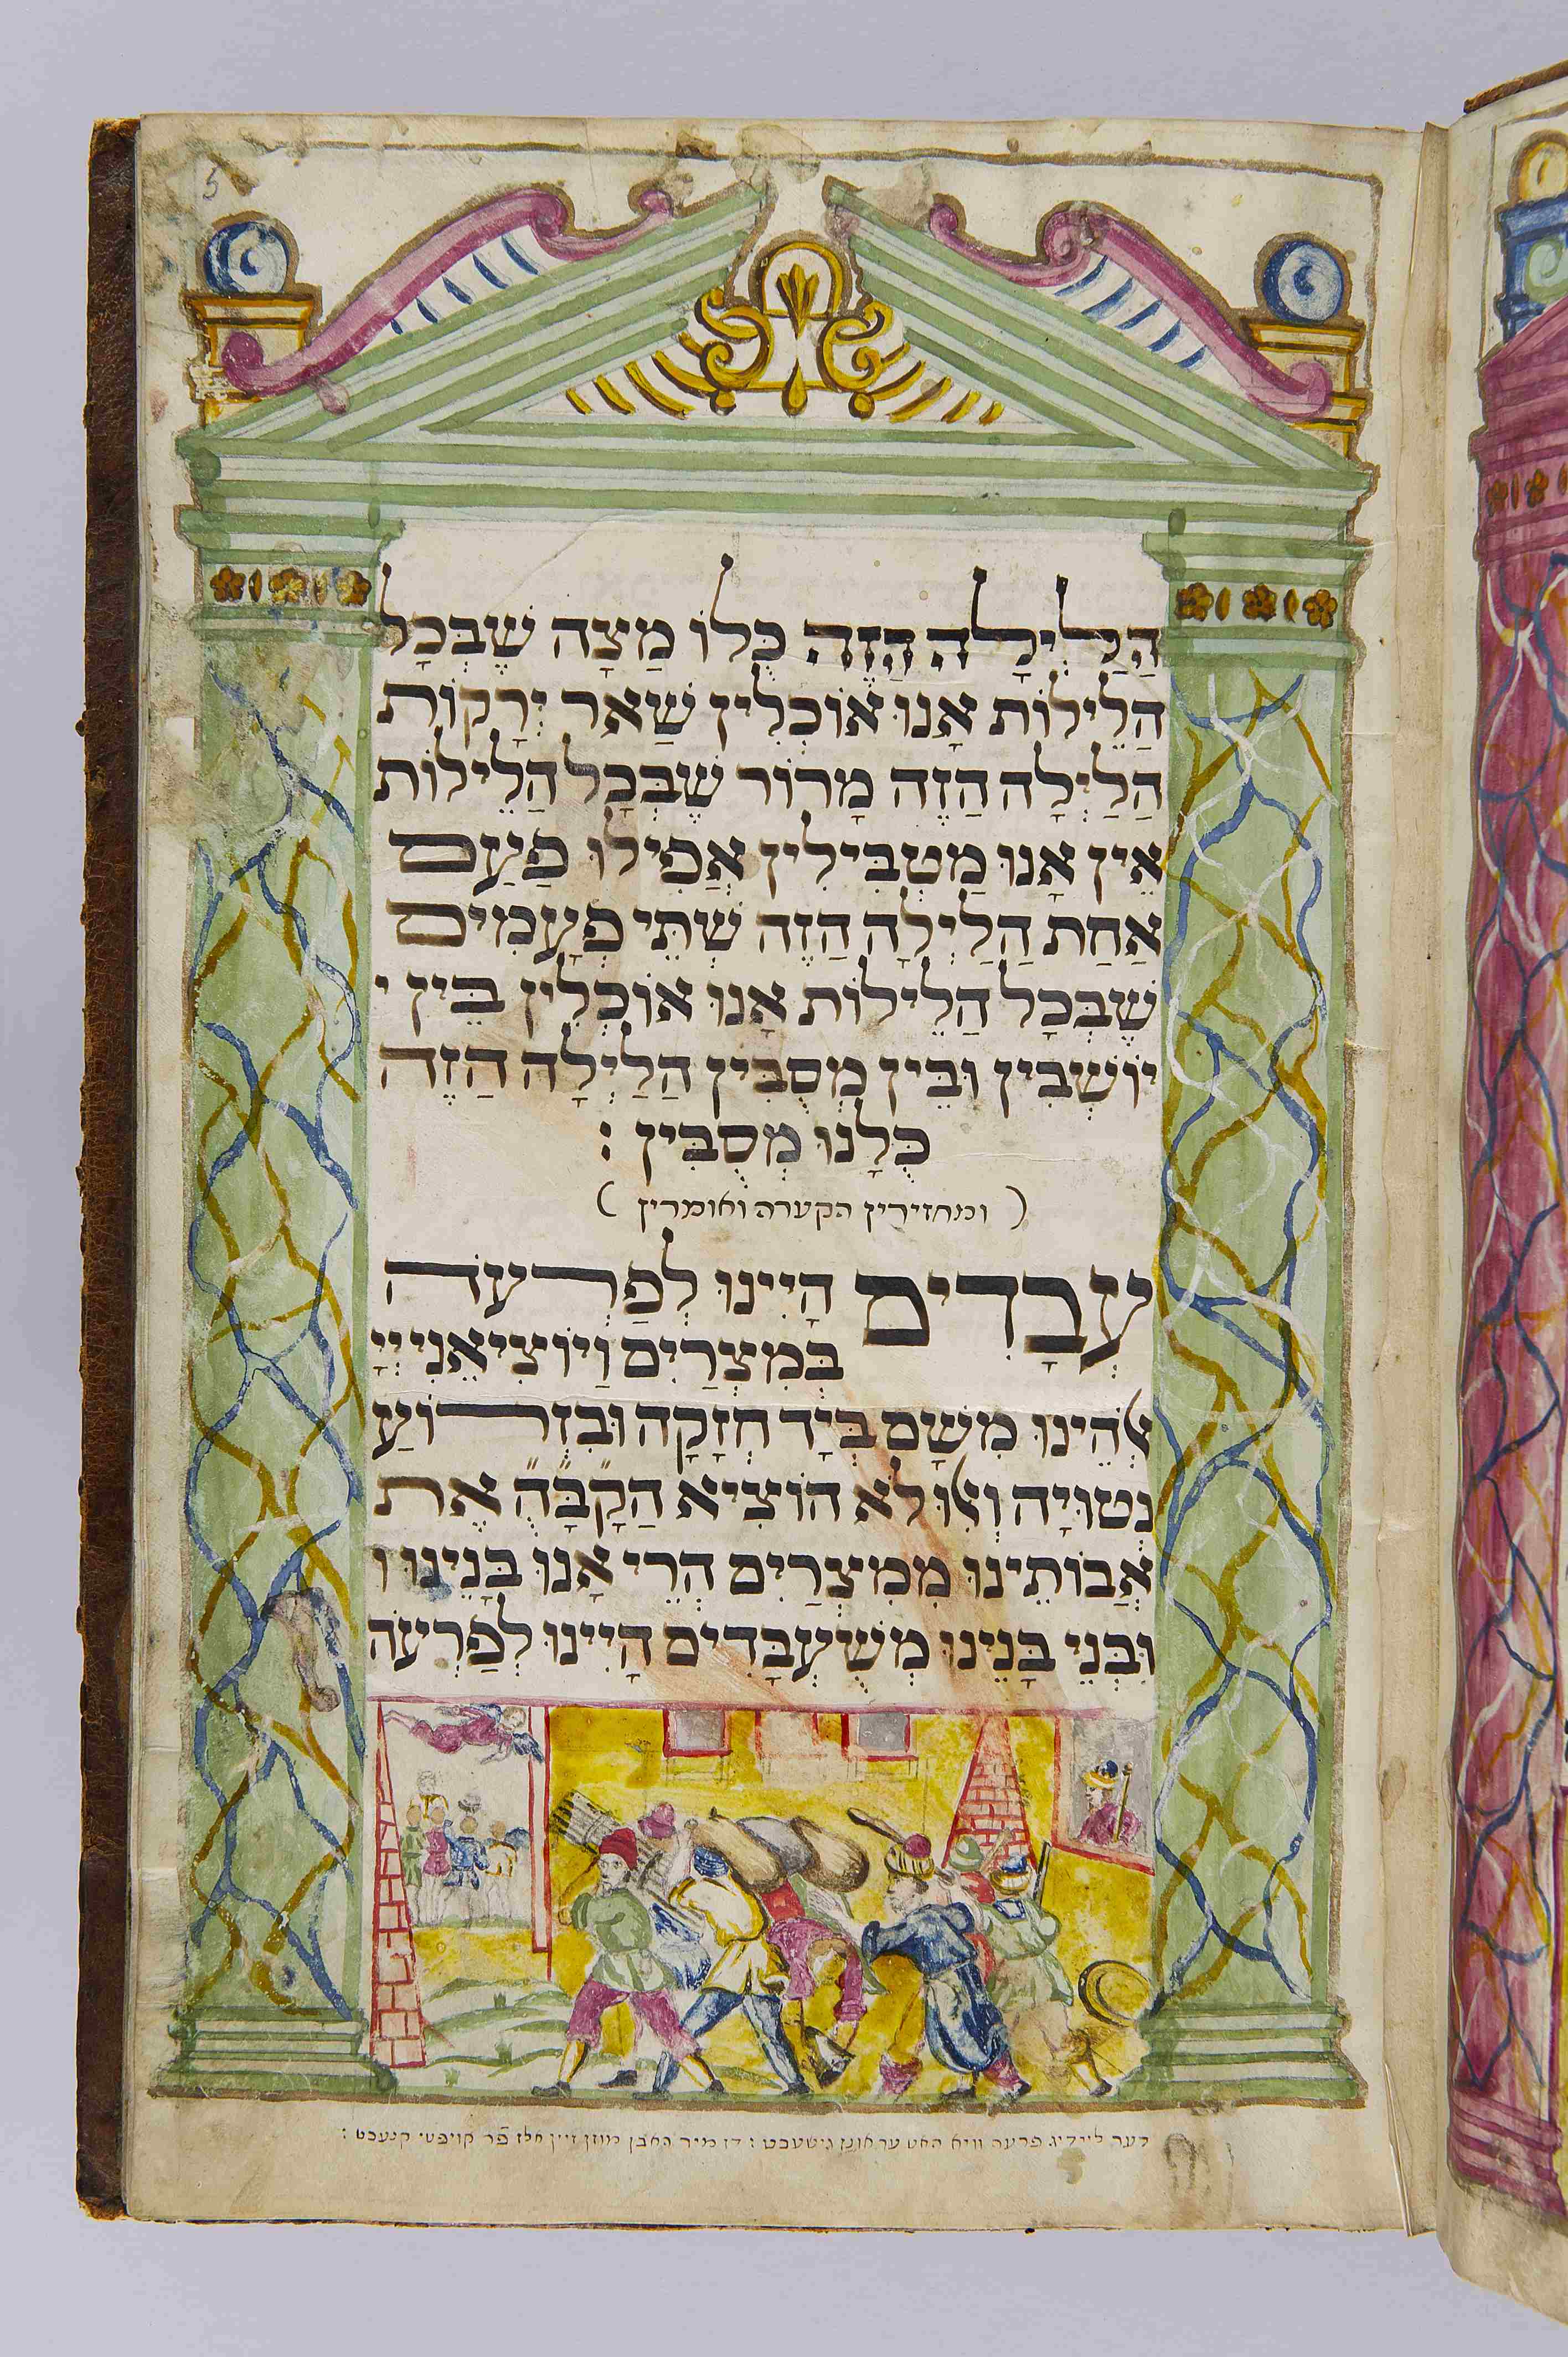 5
הַלַיְלָה הַזֶה כֻּלוֹ מַצָה שֶׁבְּכָל
הַלֵילוֹת אָנוּ אוֹכְלִין שְׁאַר יְרָקוֹת
הַלַיְלָה הַזֶה מָרוֹר שֶׁבְּכָל הַלֵילוֹת
אֵין אָנוּ מַטְבִּילִין אֲפִילוּ פַּעַם
אַחַת הַלַיְלָה הַזֶה שְׁתֵּי פְעָמִים
שֶׁבְּכָל הַלֵילוֹת אָנוּ אוֹכְלִין בֵּין י
יוֹשְׁבִין וּבֵין מְסֻבִּין הַלַיְלָה הַזֶה
כֻּלָנוּ מְסֻבִּין :
( ומחזירין הקערה ואומרין )
עֲבָדִים הָיִינוּ לְפַרְעֹה
בְּמִצְרַיִם וַיוֹצִיאֵנִי יְיָ
אֱלֹהֵינוּ מִשָׁם בְּיָד חֲזָקָה וּבִזְרוֹעַ
נְטוּיָה וְאִלּוּ לֹא הוֹצִיא הַקָּבָּ״הּ אֶת
אֲבוֹתֵינוּ מִמִצְרַיִם הֲרֵי אָנוּ בָּנֵינוּ ו
וּבְנֵי בָּנֵינוּ מְשֻׁעְבָּדִים הָיִינוּ לְפַרְעֹה
דער ליידיג פרעה וויא האט ער אונז גישעכט : דז מיר האבן מוזן זיין אלז פר קויפטי קנעכט :